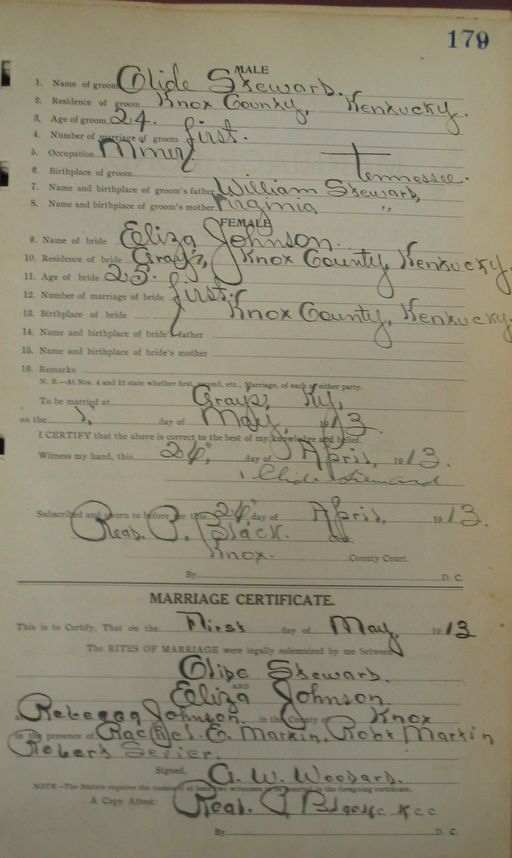 179
MALE
1. Name of groom Clide Steward.
2. Residence of groom Knox County, Kentucky.
3. Age of groom 24.
4. Number of marriage of groom first.
5. Occupation Miner
6. Birthplace of groom Tennessee.
7. Name and birthplace of groom's father William Steward,
8. Name and birthplace of groom's mother Virginia "
FEMALE
9. Name of bride Eliza Johnson.
10. Residence of bride Grays, Knox County, Kentucky.
11. Age of bride 25.
12. Number of marriage of bride first.
13. Birthplace of bride Knox County, Kentucky.
14. Name and birthplace of bride's father
15. Name and birthplace of bride's mother
16. Remarks
N. B.—At Nos. 4 and 12 state whether first, second, etc., Marriage, of each of either party.
To be married at Grays, Ky,
on the 1, day of May, 1913.
I CERTIFY that the above is correct to the best of my knowledge and belief.
Witness my hand, this 24", day of April, 1913.
Clide Steward
Subscribed and sworn to before me this 24" day of April, 1913.
Read P. Black. Clerk
Knox. County Court.
By D. C.
MARRIAGE CERTIFICATE.
This is to Certify, That on the First day of May, 1913
The RITES OF MARRIAGE were legally solemnized by me between
Clide Steward.
AND
Eliza Johnson.
Rebecca Johnson. in the County of Knox
in the presence of Rachel E. Martin, Robt Martin
Robert Sevier.
Signed, G. W. Woodard.
NOTE—The Statute requires the names of at least two witnesses to be inserted in the foregoing certificate.
A Copy Attest: Read P. Black K C C
By D. C.